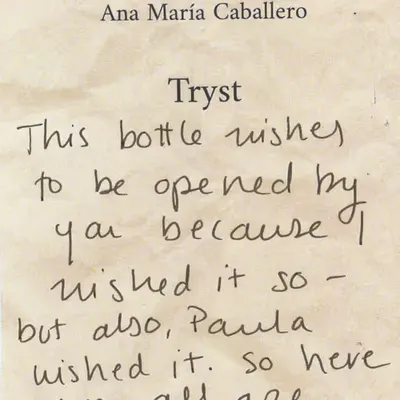 Ana María Caballero
Tryst
This bottle wishes
to be opened by
you because I
wished it so –
but also, Paula
wished it. so here
all are